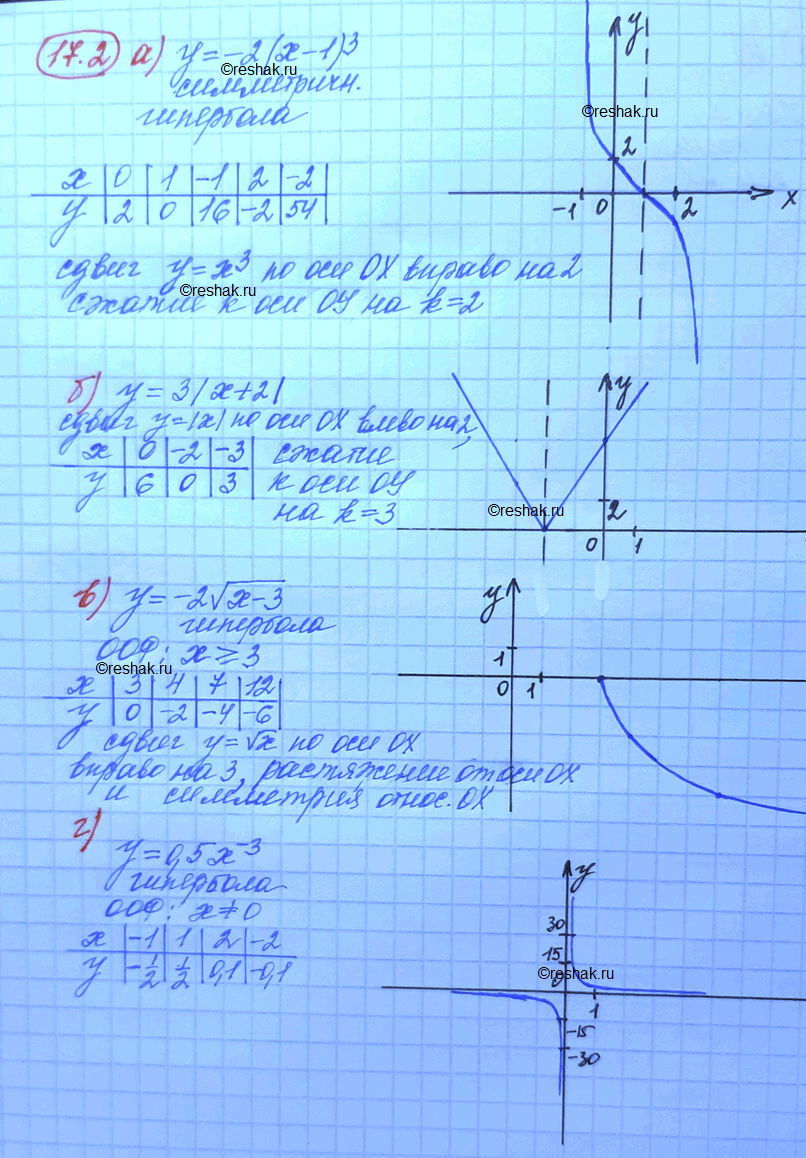 17.2 а) y = -2(x-1)³
©reshak.ru
симметричн.
гипербола
x | 0 | 1 | -1 | 2 | -2
y | 2 | 0 | 16 | -2 | 54
сдвиг y = x³ по оси OX вправо на 2
©reshak.ru
сжатие к оси OY на k=2
y
©reshak.ru
2
-1 0 2 x
б) y = 3|x+2|
сдвиг y=|x| по оси OX влево на 2,
x | 0 | -2 | -3 | сжатие
y | 6 | 0 | 3 | к оси OY
на k=3
y
©reshak.ru
2
0 1
в) y = -2√x-3
гипербола
ООФ: x ≥ 3
©reshak.ru
x | 3 | 4 | 7 | 12
y | 0 | -2 | -4 | -6
сдвиг y=√x по оси OX
вправо на 3, растяжение от оси OX
и симметрия относ. OX
y
1
0 1
г)
y = 0,5x⁻³
гипербола
ООФ: x ≠ 0
x | -1 | 1 | 2 | -2
y | -1/2 | 1/2 | 0,1 | -0,1
y
30
15
©reshak.ru
0
1
-15
-30